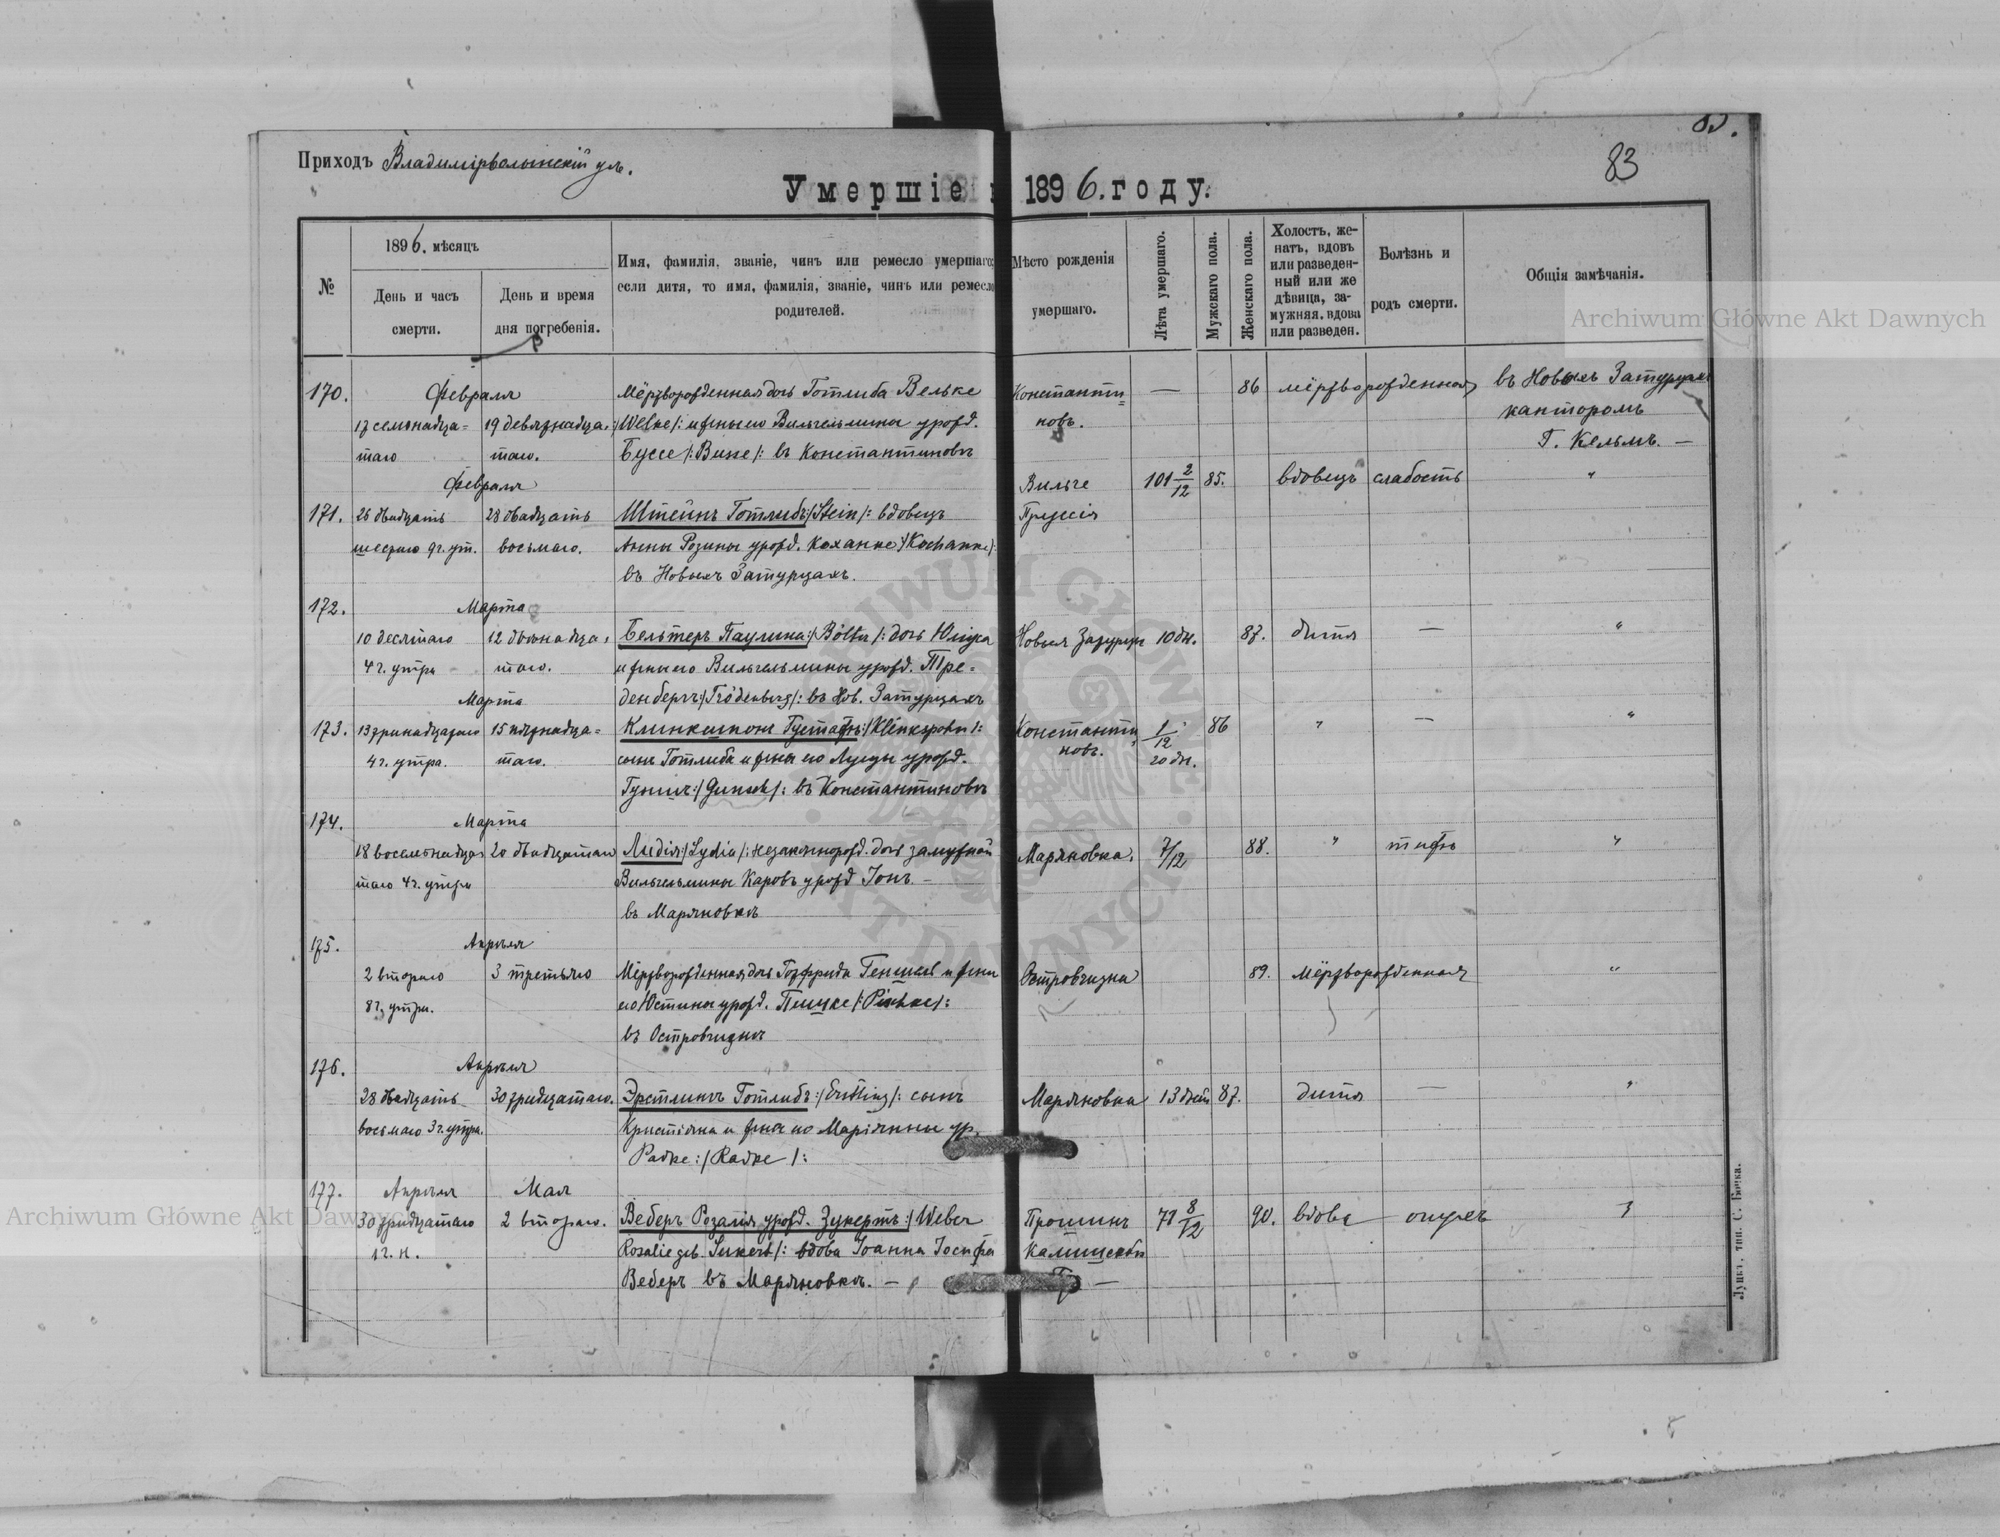 Приходъ Владимірволынскій уѣ.
83
Умершіе 1896. году.
№
1896. мѣсяцъ
День и часъ смерти.
День и время дня погребенія.
Имя, фамилія, званіе, чинъ или ремесло умершаго;
если дитя, то имя, фамилія, званіе, чинъ или ремесло
родителей.
Мѣсто рожденія
умершаго.
Лѣта умершаго.
Мужскаго пола.
Женскаго пола.
Холостъ, же-
натъ, вдовъ
или разведен-
ный или же
дѣвица, за-
мужняя, вдова
или разведен.
Болѣзнь и
родъ смерти.
Общія замѣчанія.
Archiwum Główne Akt Dawnych
170. Февраля Мёртворожденная дочь Готлиба Вельке Константи= — 86 мёртворожденная въ Новыхъ Затурцахъ
17 семьнадца= 19 девятнадца= /Welke/: и жены его Вильгельмины урожд. новъ. канторомъ
таго таго. Буссе /: Busse /: въ Константиновѣ Г. Кельмъ. —
Февраля Вильче 101 2/12 85. вдовецъ слабость "
171. 26 двадцать 28 двадцать Штейнъ Готлибъ :/Stein/: вдовецъ Пруссія
шестаго 9 г. ут. восьмаго. Анны Розины урожд. Коханке /Kochanke/:
въ Новыхъ Затурцахъ.
172. Марта
10 десятаго 12 двѣнадца= Бельтеръ Паулина :/Bölter/: дочь Юліуса Новыя Затурцы 10 дн. 87. дитя — "
4 г. утра таго. и жены его Вильгельмины урожд. Тре=
Марта денбергъ :/Trödenberg/: въ Нов. Затурцахъ
173. 13 тринадцатаго 15 пятнадца= Клинкшпонъ Густафъ :/Klinkspohn/: Константи= 1/12 86 " — "
4 г. утра. таго. сынъ Готлиба и жены его Луизы урожд. новъ. 20 дн.
Гуншъ :/Gunsch/: въ Константиновѣ
174. Марта
18 восемьнадца= 20 двадцатаго Лидія :/Lydia/: незаконнорожд. дочь замужней Маряновка. 7/12 88. " тифъ "
таго 4 г. утра Вильгельмины Каровъ урожд Іонъ. —
въ Маряновкѣ
175. Апрѣля
2 втораго 3 третьяго Мёртворожденная дочь Готфрида Геншель и жены Островчизна 89. мёртворожденная "
8 г. утра. его Юстины урожд. Пишке /: Pischke /:
въ Островчизнѣ
176. Апрѣля
28 двадцать 30 тридцатаго. Эрстлингъ Готлибъ :/Erstling/: сынъ Маряновка 13 дней 87. дитя — "
восьмаго 3 г. утра. Кристіяна и жены его Маріянны ур.
Радке :/Radke/:
177. Апрѣля Мая
30 тридцатаго 2 втораго. Веберъ Розалія урожд. Зукертъ :/Weber Прошинъ 71 8/12 90. вдова опухъ "
1 г. н. Rosalie geb. Sukert/: вдова Іоанна Іосифа Калишской
Веберъ въ Маряновкѣ. — Гр —
Луцкъ, тип. С. Бочка.
Archiwum Główne Akt Dawnych
ARCHIWUM GŁÓWNE AKT DAWNYCH